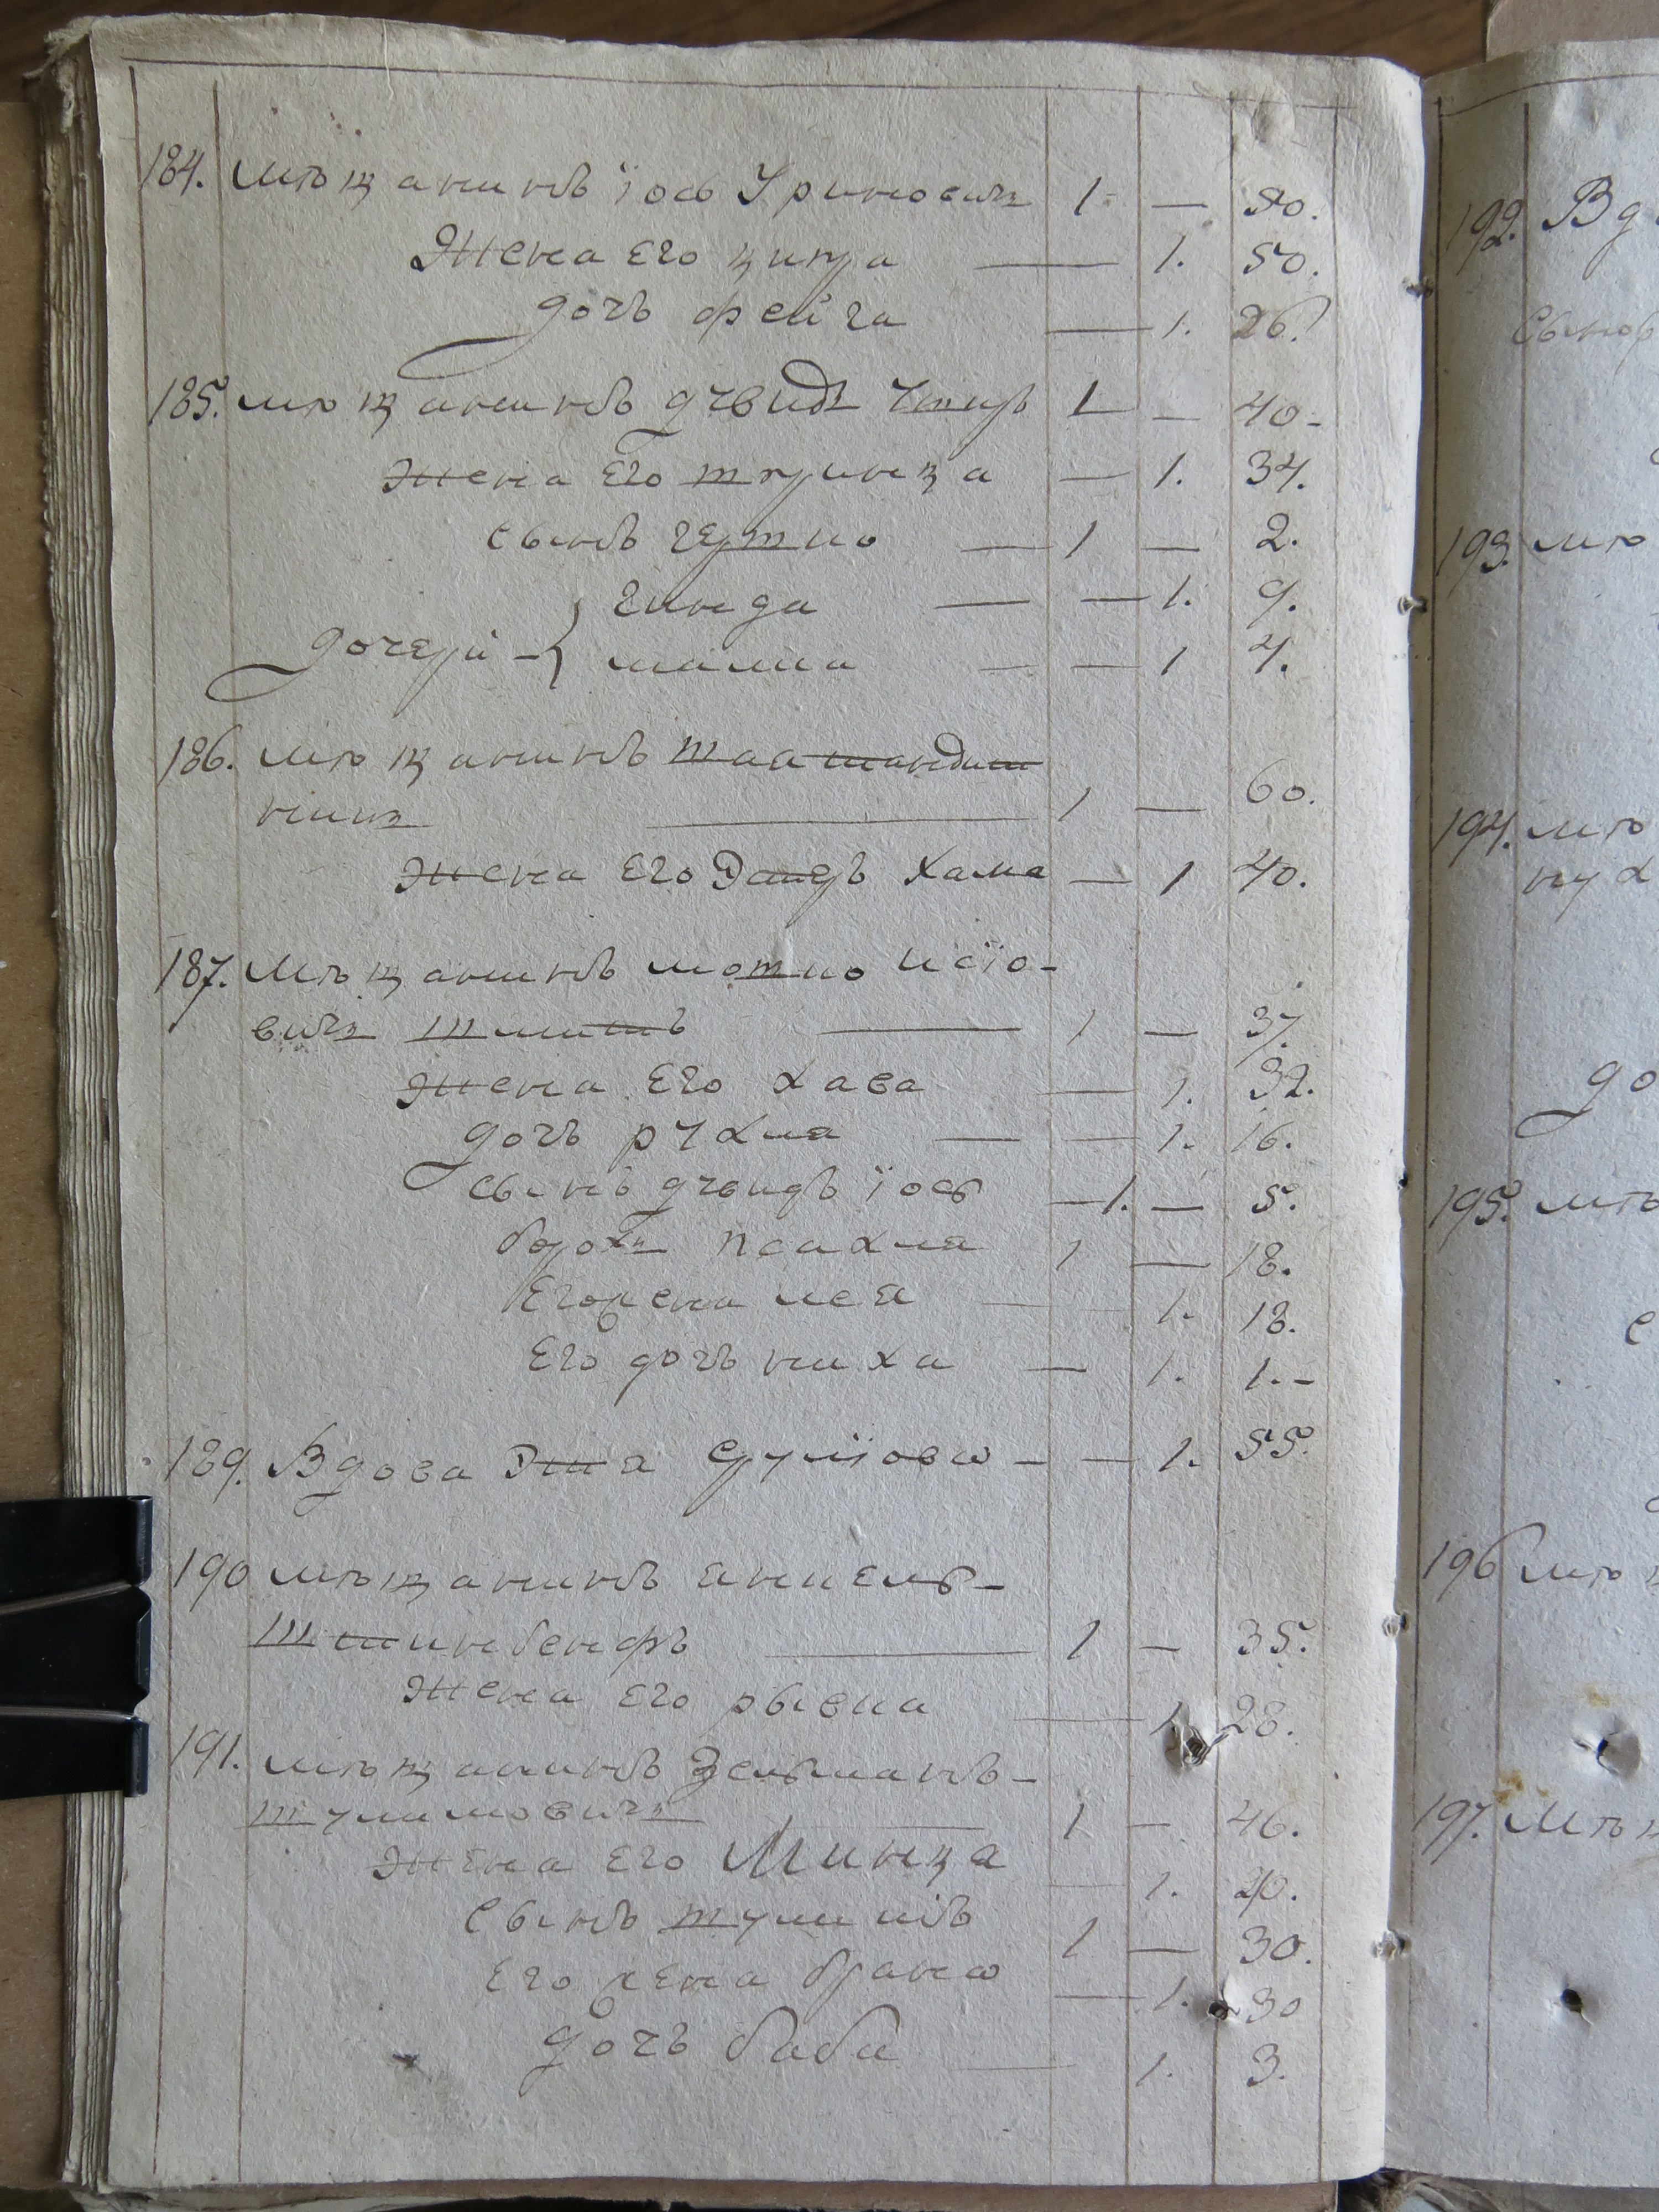 184. мѣщанинъ їось Уриновичъ 1 — 50.
Жена Его ципра — 1. 50.
дочь фейга — 1. 26.
185. мѣщанинъ дувидъ 1 — 40 -
Жена Его шпринца — 1. 34.
Сынъ гершко — 1 — 2.
гинда — — 1. 9.
дочери - { малка — — 1 4.
186. мѣщанинъ
1 — 60.
Жена Его хама — 1 40.
187. Мѣщанинъ мошко иосїо-
вичъ — 1 — 37.
Жена Его хава — 1. 32.
дочь рухля — — 1. 16.
Сынъ дувидъ їось — 1. — 5.
братъ псахля 1 — 18.
Его жена лея — 1. 18.
Его дочь — 1. 1. -
189. Вдова срулїова - — 1. 55.
190 мѣщанинъ янкель -
1 — 35.
Жена Его рывка — 1 28.
191. мѣщанинъ Зельманъ -
шулимовичъ — 1 — 46.
Жена Его Минца — 1. 40.
Сынъ шулимъ 1 — 30.
Его жена брана — 1. 30
дочь баба — 1. 3.
192. Вд
Сынов
193. мѣ
194. мѣ
пух
до
195. мѣ
196 мѣщ
197. Мѣщ